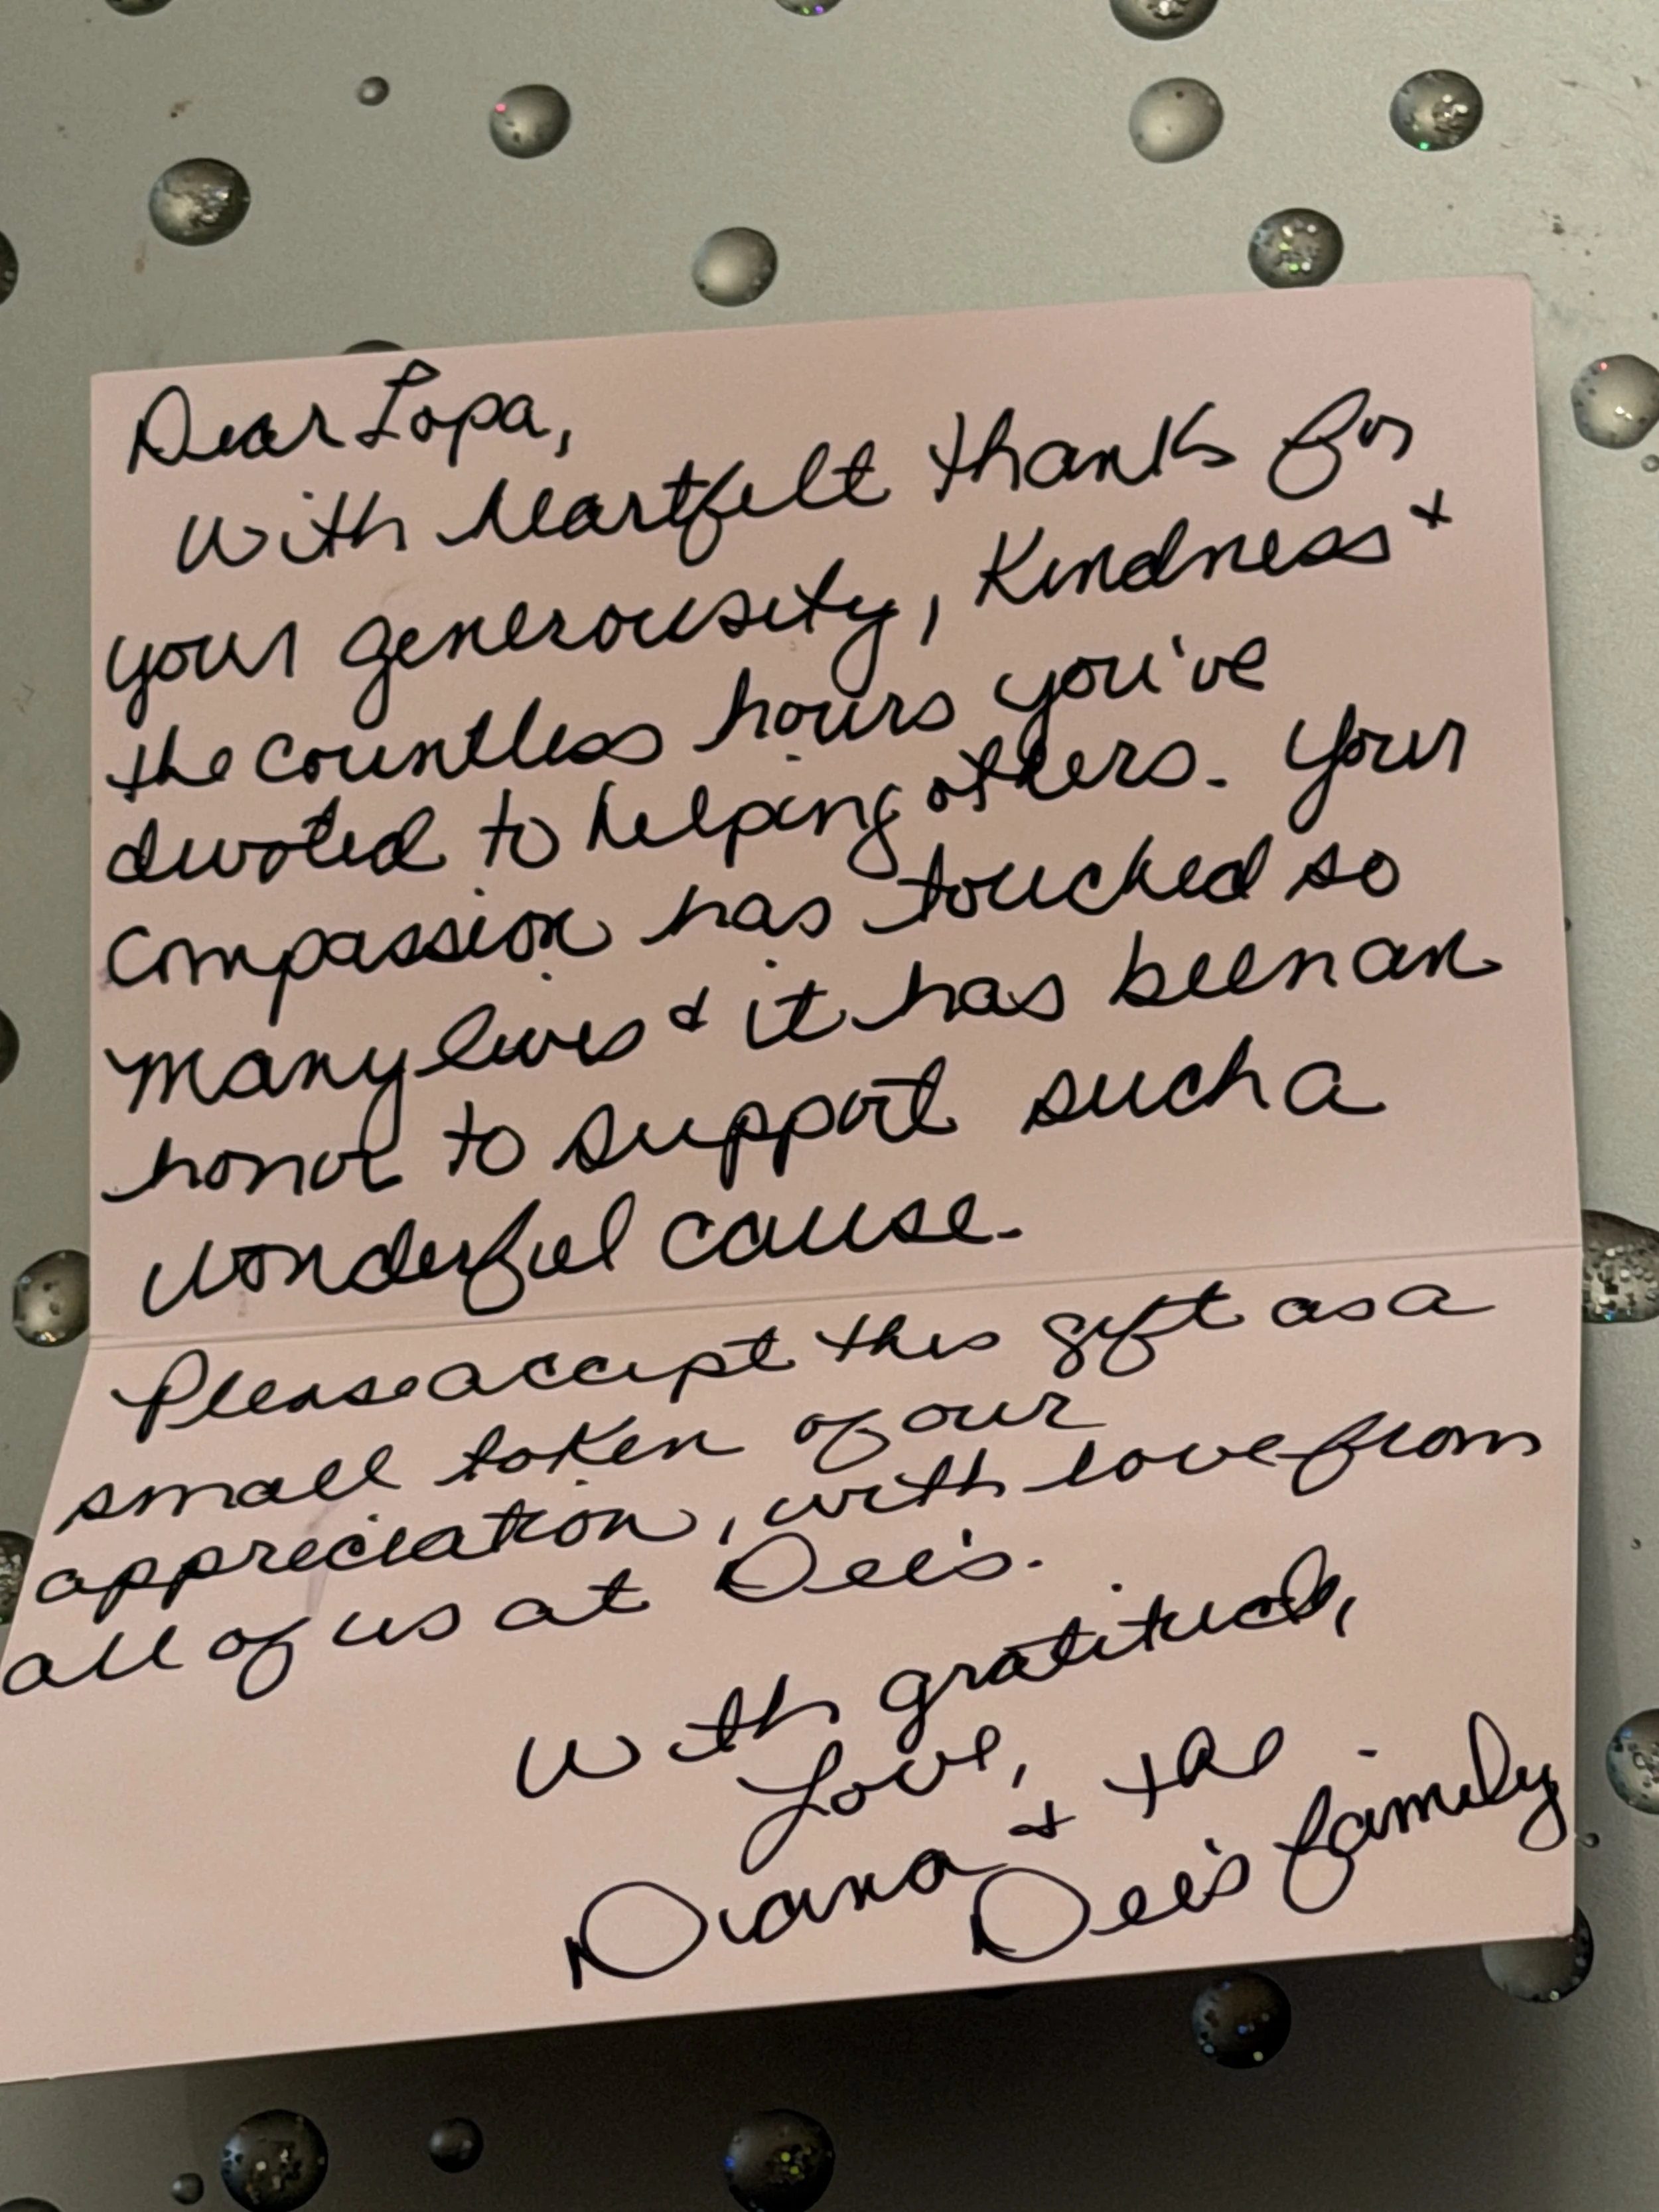 Dear Lopa,
With heartfelt thanks for
your generousity, Kindness &
the countless hours you've
devoted to helping others. Your
compassion has touched so
many lives & it has been an
honor to support such a
wonderful cause.
Please accept this gift as a
small token of our
appreciation, with love from
all of us at Dee's.
With gratitude,
Love,
Diana & the
Dee's family